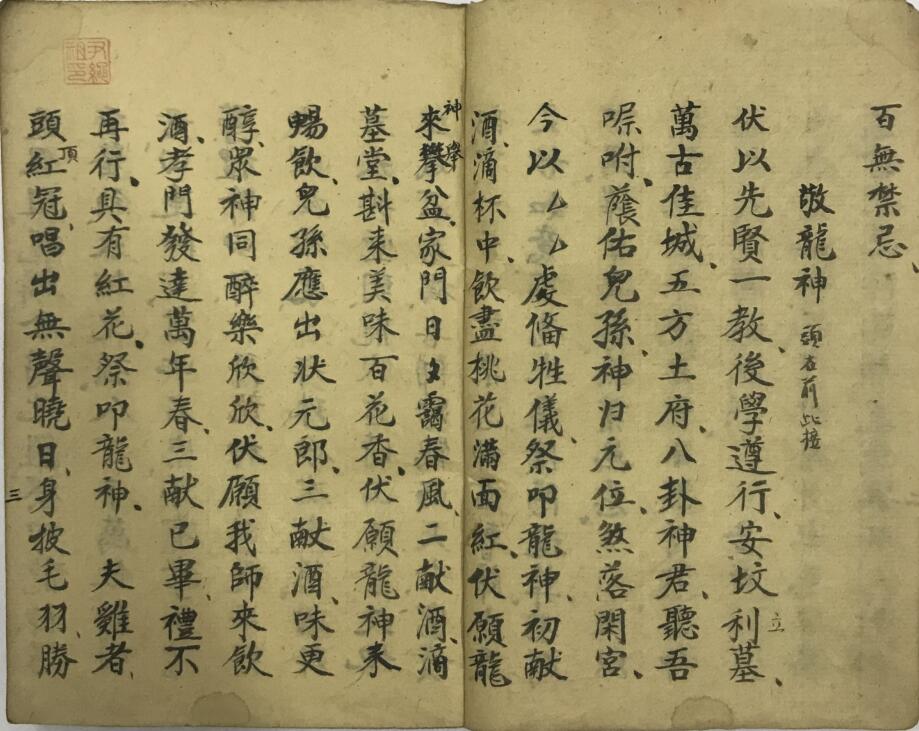 百無禁忌、
敬龍神 頭在前此壇
伏以先賢一教、後學遵行、安坟利墓、
立
萬古佳城、五方土府、八卦神君、聽吾
𠴨咐、蔭佑兒孫、神归元位、煞落閑宮、
今以厶厶處俻牲儀、祭叩龍神、初献
酒、滴杯中、飲盡桃花滿面紅、伏願龍
神 舉
來攀盆、家門日日靄春風、二献酒、滴
墓堂、斟来美味百花香、伏願龍神来
暢飲、兒孫應出狀元郎、三献酒、味更
醇、眾神同醉樂欣欣、伏願我師來飲
酒、孝門發達萬年春、三献已畢、禮不
再行、具有紅花、祭叩龍神、 夫雞者、
頂
頭紅冠、唱出無聲曉日、身披毛羽、勝
三